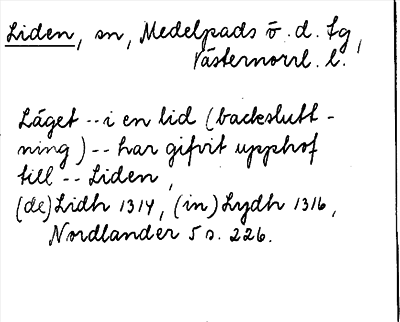 Liden, sn, Medelpads ö. d. tg,
Västernorrl. l.
Läget -- i en lid (backslutt-
ning) -- har gifvit upphof
till -- Liden,
(de) Lidh 1314, (in) Lydh 1316,
Nordlander 5 s. 226.